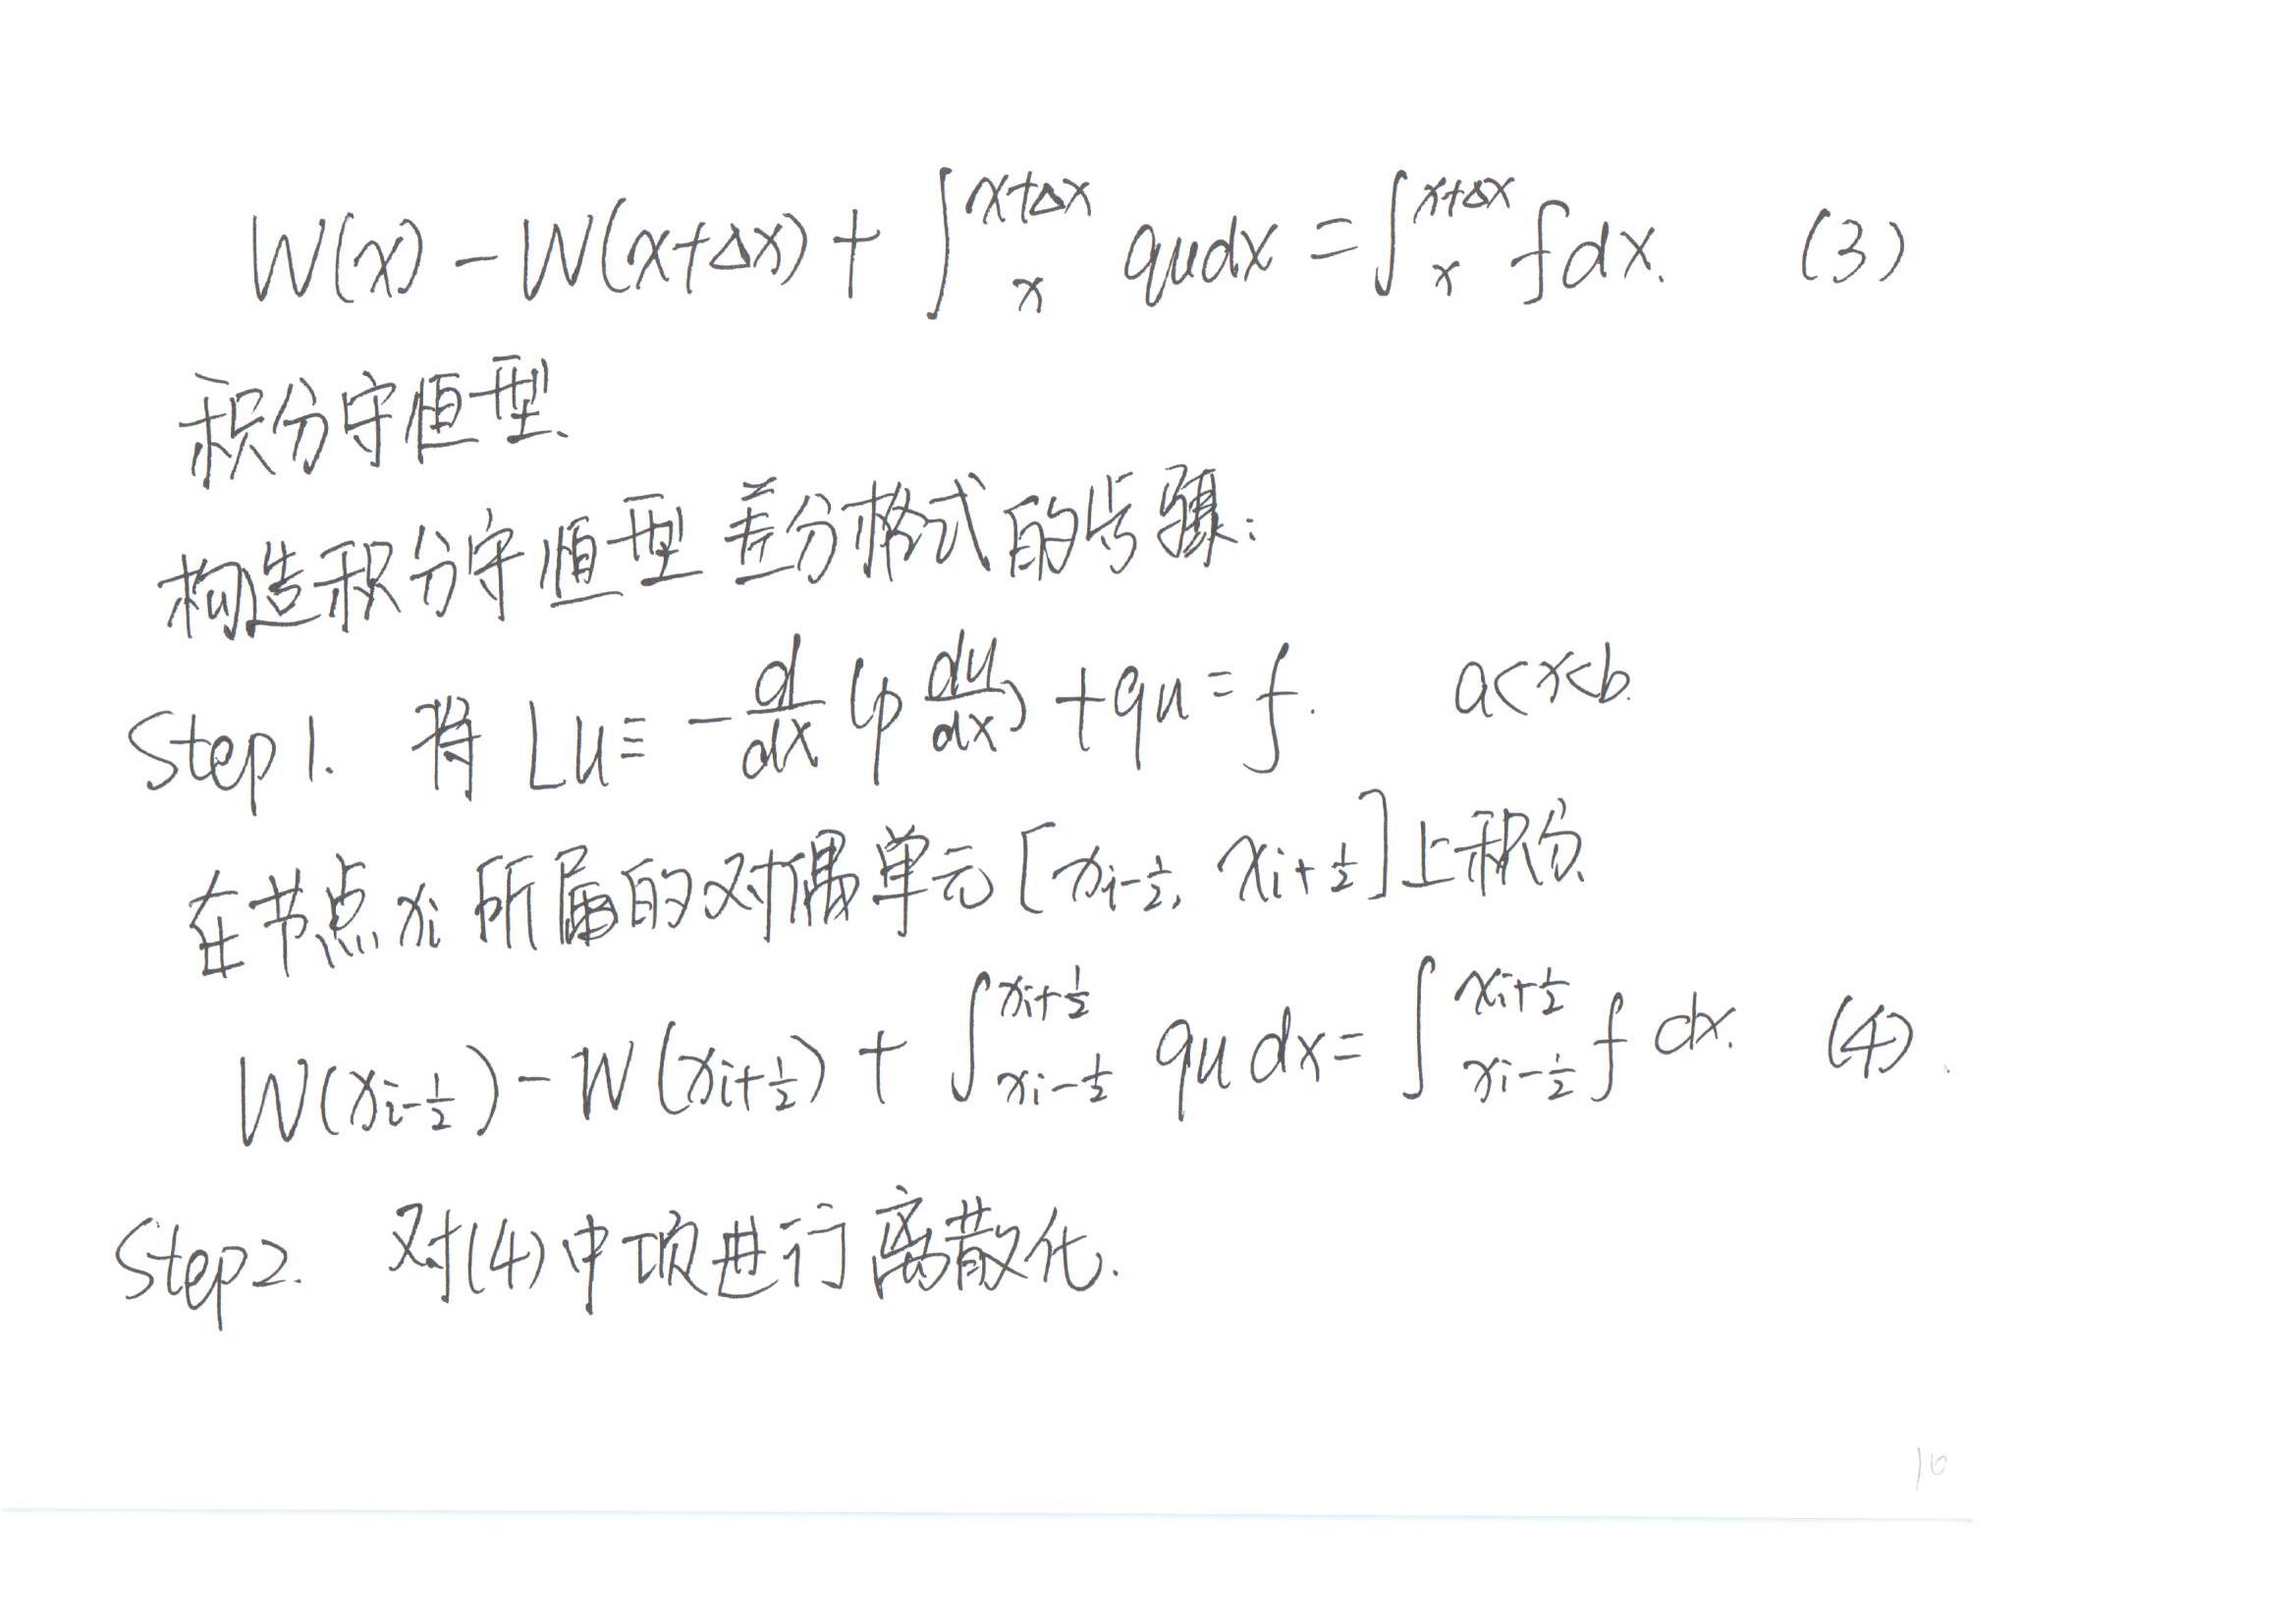 W(x) - W(x+Δx) + ∫_x^{x+Δx} qudx = ∫_x^{x+Δx} fdx. (3)
积分守恒型.
构造积分守恒型差分格式的步骤:
Step 1. 将 Lu ≡ -\frac{d}{dx}(p\frac{du}{dx}) + qu = f. a<x<b.
在节点 x_i 所属的对偶单元 [x_{i-\frac{1}{2}}, x_{i+\frac{1}{2}}] 上积分
W(x_{i-\frac{1}{2}}) - W(x_{i+\frac{1}{2}}) + ∫_{x_{i-\frac{1}{2}}}^{x_{i+\frac{1}{2}}} qu dx = ∫_{x_{i-\frac{1}{2}}}^{x_{i+\frac{1}{2}}} f dx. (4).
Step2. 对(4)中项进行离散化.